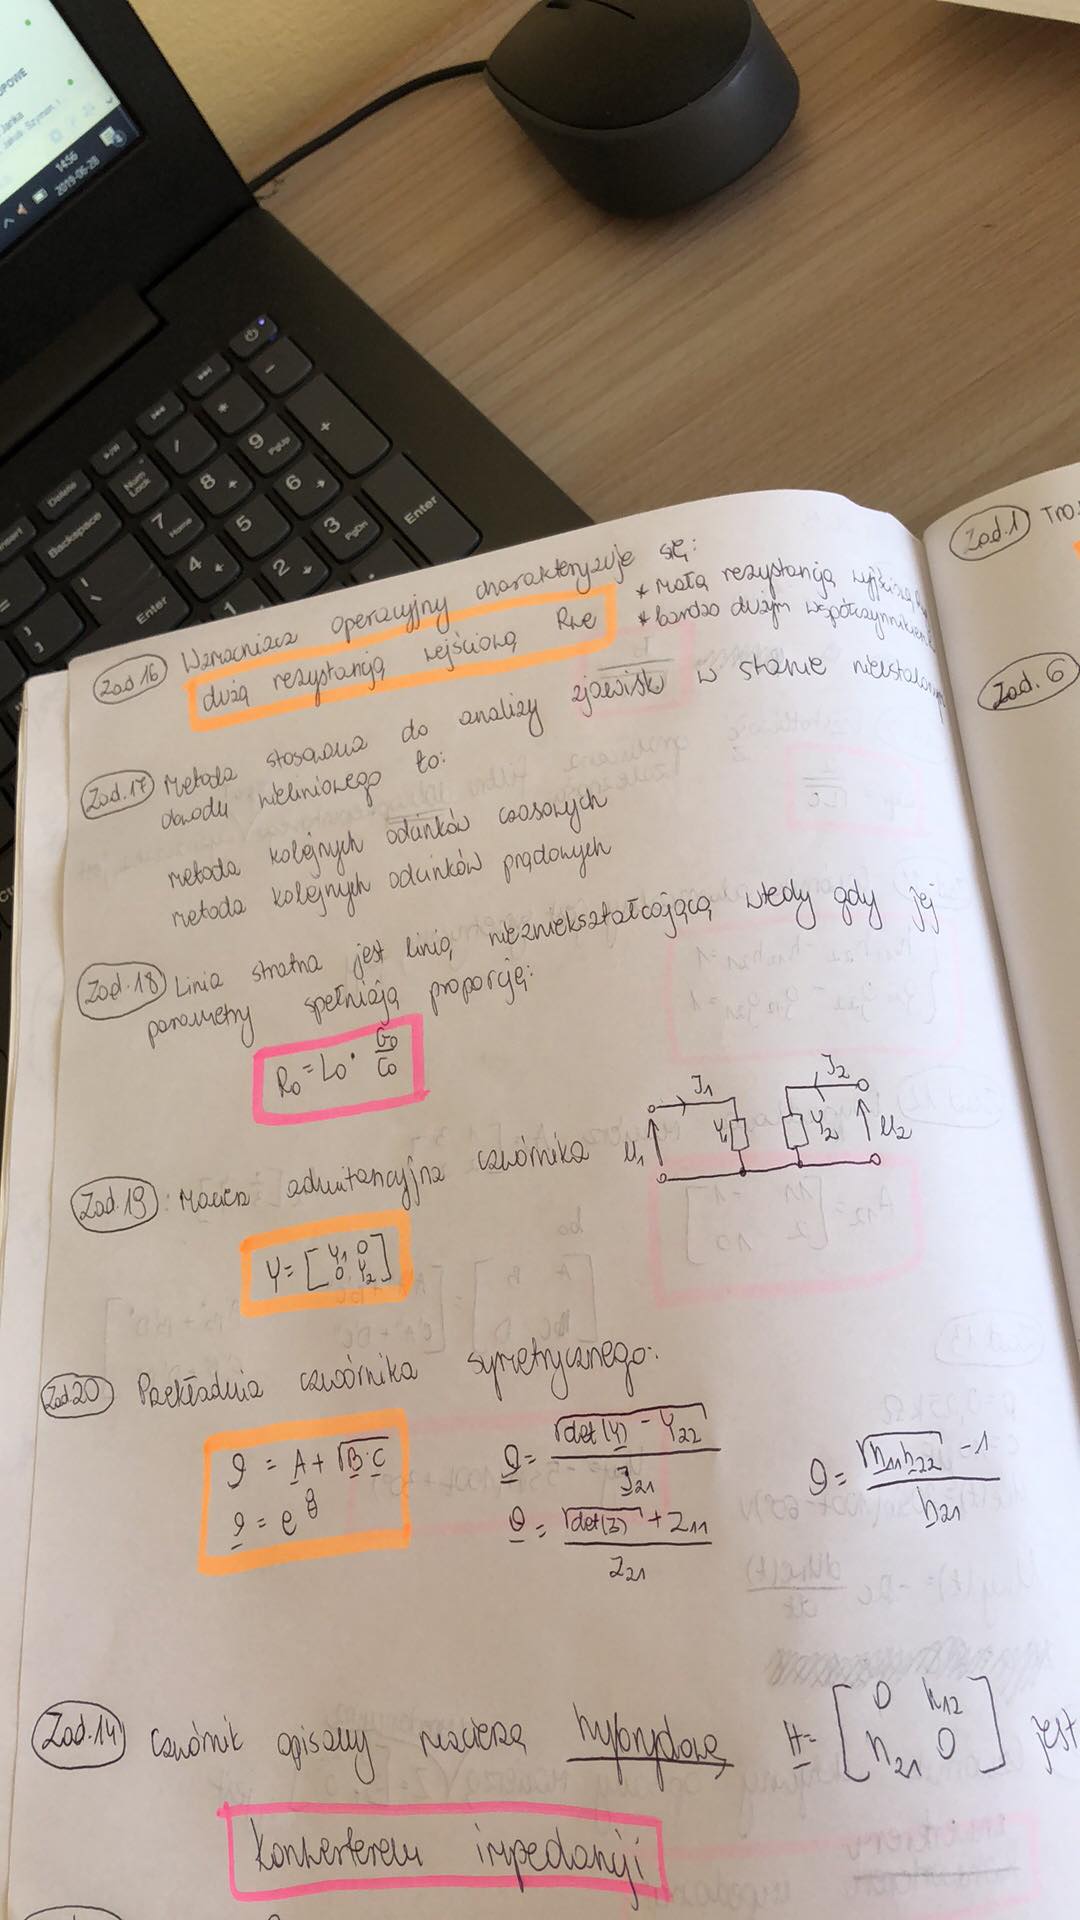 14:56
2019-06-28
Delete
Backspace
Num Lock
/
*
-
7 Home
8
9 PgUp
+
4
5
6
Enter
1
2
3 PgDn
Enter
Zad 16 Wzmacniacz operacyjny charakteryzuje się:
dużą rezystancją wejściową Rwe
* małą rezystancją wyjściową
* bardzo dużym
Zad. 17 Metoda stosowana do analizy zjawisk w stanie nieustalonym
obwodu nieliniowego to:
metoda kolejnych odcinków czasowych
metoda kolejnych odcinków prądowych
Zad. 18 Linia stratna jest linią niezniekształcającą wtedy gdy jej
parametry spełniają proporcję:
R₀ = L₀ · G₀/C₀
Zad. 19: Macierz admitancyjna czwórnika
U₁ I₁ Y₁ Y₂ I₂ U₂
Y = [ Y₁ 0
0 Y₂ ]
Zad 20 Przekładnia czwórnika symetrycznego:
ϑ = A + √B·C
ϑ = e^g
ϑ = √det(Y) - Y₂₂ / Y₂₁
ϑ = √det(Z) + Z₁₁ / Z₂₁
ϑ = √h₁₁h₂₂ - 1 / h₂₁
Zad. 14 Czwórnik opisany macierzą hybrydową H = [ 0 h₁₂
h₂₁ 0 ] jest
Konwerterem impedancji
Zad. 1
Zad. 6